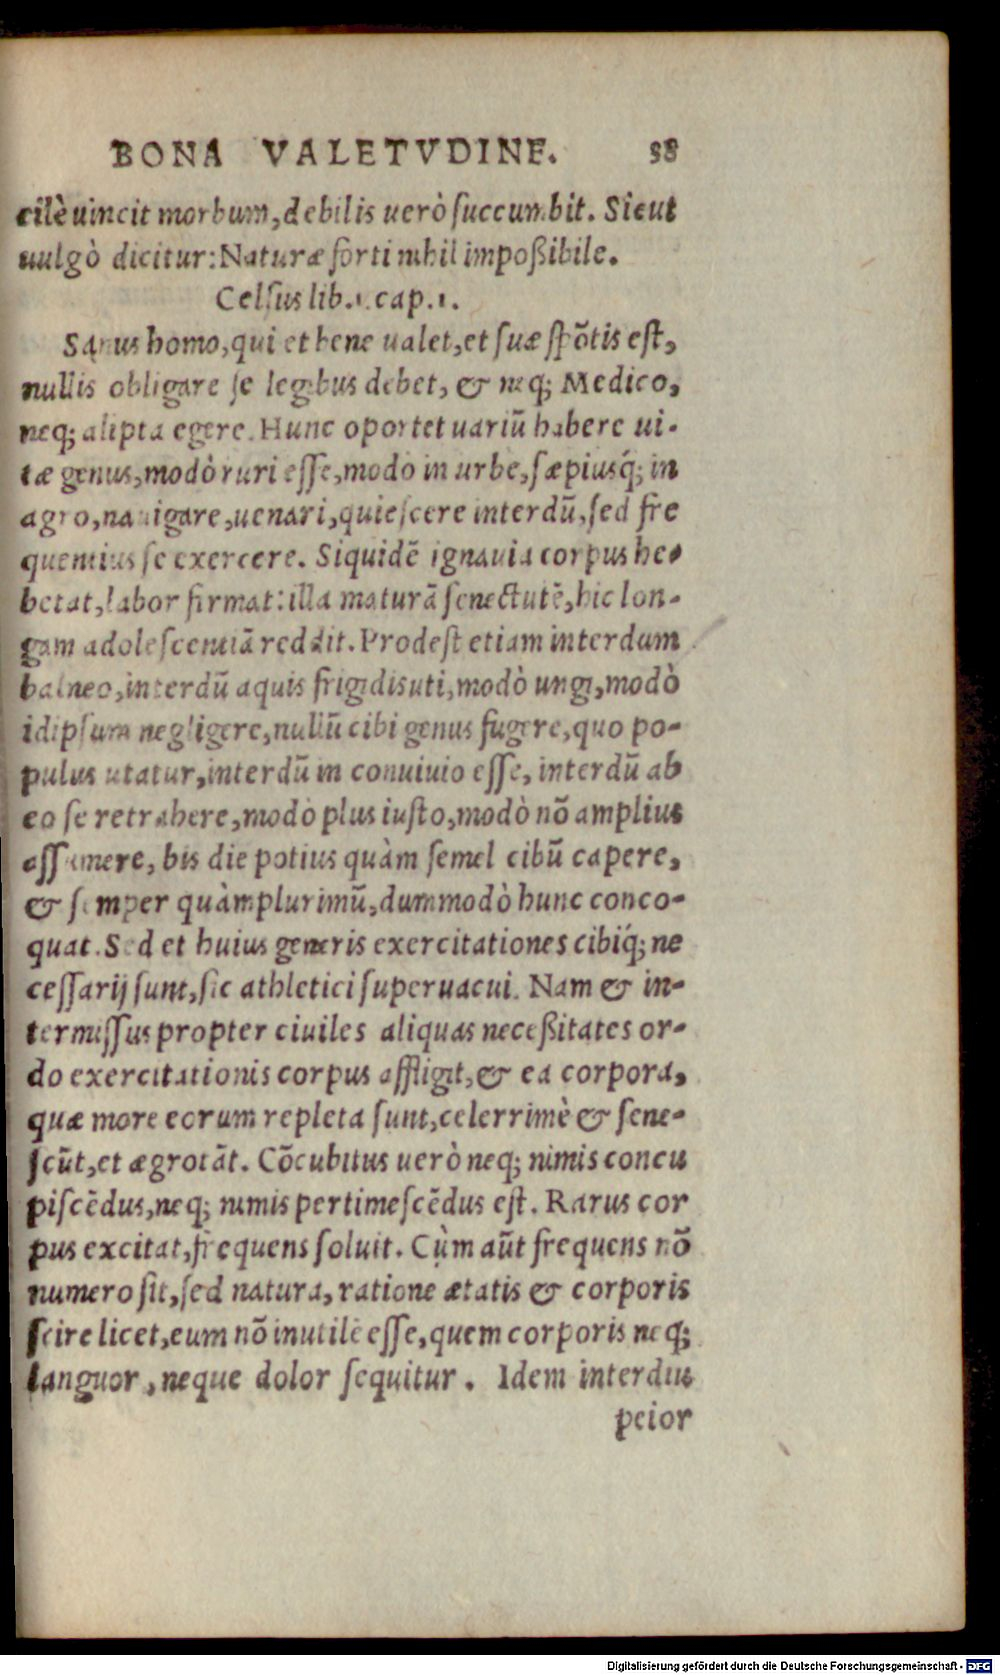 BONA VALETVDINE. 38
cilè uincit morbum, debilis uerò ſuccumbit. Sicut
uulgò dicitur: Naturæ forti nihil impoßibile.
Celſus lib.1. cap.1.
Sanus homo, qui et bene ualet, et ſuæ ſpõtis eſt,
nullis obligare ſe legibus debet, & neq; Medico,
neq; alipta egere. Hunc oportet uariũ habere ui-
tæ genus, modò ruri eſſe, modo in urbe, ſæpiusq́; in
agro, nauigare, uenari, quieſcere interdũ, ſed fre
quentius ſe exercere. Siquidẽ ignauia corpus he-
betat, labor firmat: illa maturã ſenectutẽ, hic lon-
gam adoleſcentiã reddit. Prodeſt etiam interdum
balneo, interdũ aquis frigidis uti, modò ungi, modò
idipſum negligere, nullũ cibi genus fugere, quo po-
pulus utatur, interdũ in conuiuio eſſe, interdũ ab
eo ſe retrahere, modò plus iuſto, modò nõ amplius
aſſumere, bis die potius quàm ſemel cibũ capere,
& ſemper quàm plurimũ, dummodò hunc conco-
quat. Sed et huius generis exercitationes cibiq́; ne
ceſſarij ſunt, ſic athletici ſuperuacui. Nam & in-
termiſſus propter ciuiles aliquas neceßitates or-
do exercitationis corpus affligit, & ea corpora,
quæ more eorum repleta ſunt, celerrimè & ſene-
ſcũt, et ægrotãt. Cõcubitus uerò neq; nimis concu
piſcẽdus, neq; nimis pertimeſcẽdus eſt. Rarus cor
pus excitat, frequens ſoluit. Cùm aũt frequens nõ
numero ſit, ſed natura, ratione ætatis & corporis
ſcire licet, eum nõ inutilẽ eſſe, quem corporis neq;
languor, neque dolor ſequitur. Idem interdiu
peior
Digitalisierung gefördert durch die Deutsche Forschungsgemeinschaft - DFG